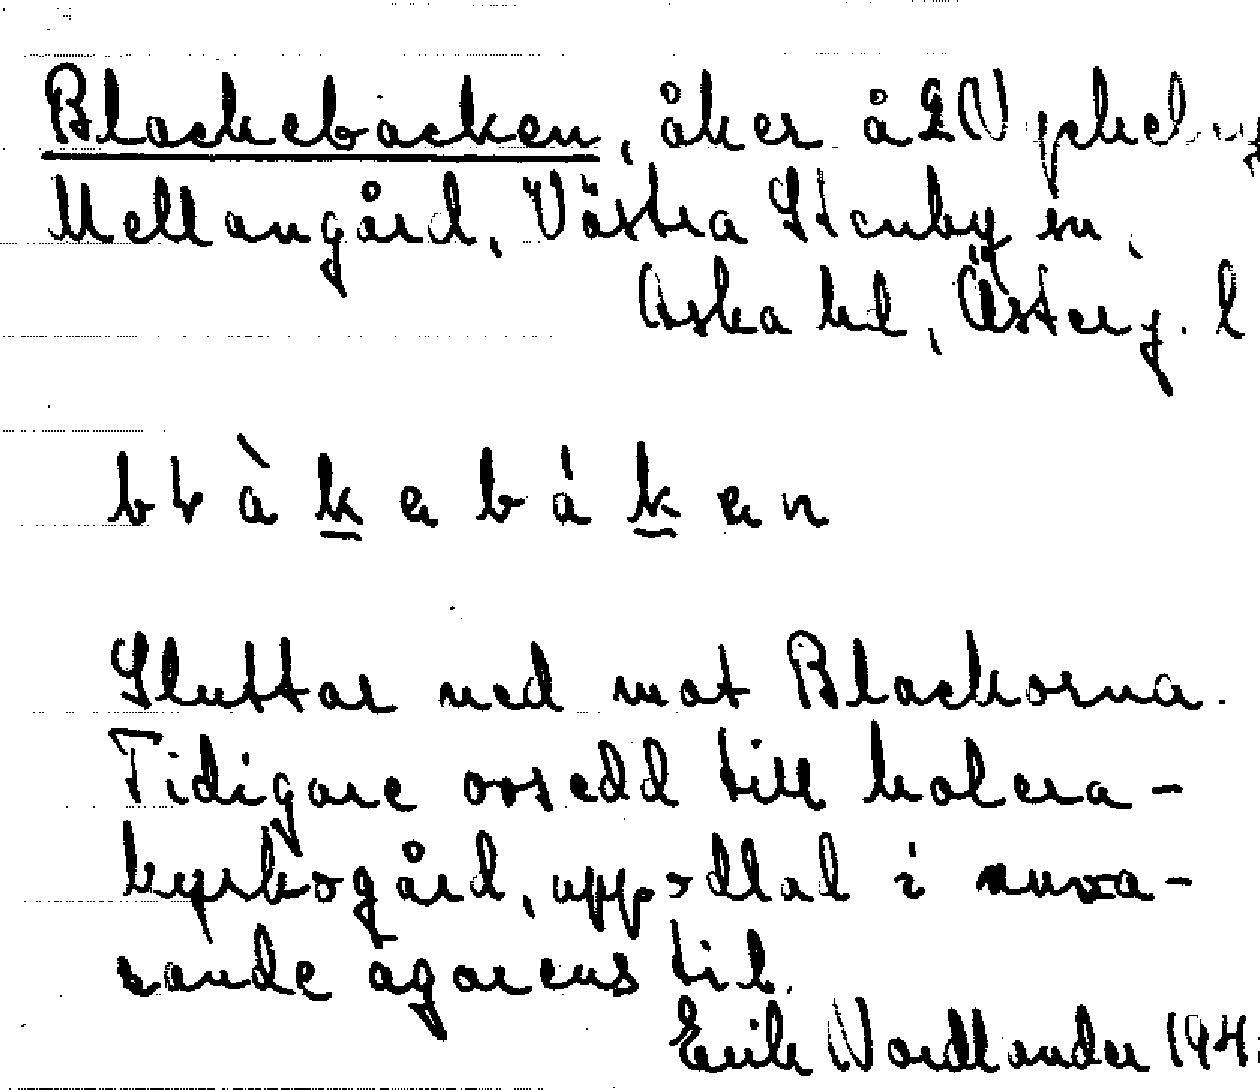 Blackebacken, åker å
Mellangård, Västra Stenby sn,
Aska hd, Österg. l
blàkebákan
Sluttar ned mot Blackorna.
Tidigare avsedd till kolera-
kyrkogård, uppodlad i nuva-
rande ägarens tid.
Erik Nordlander